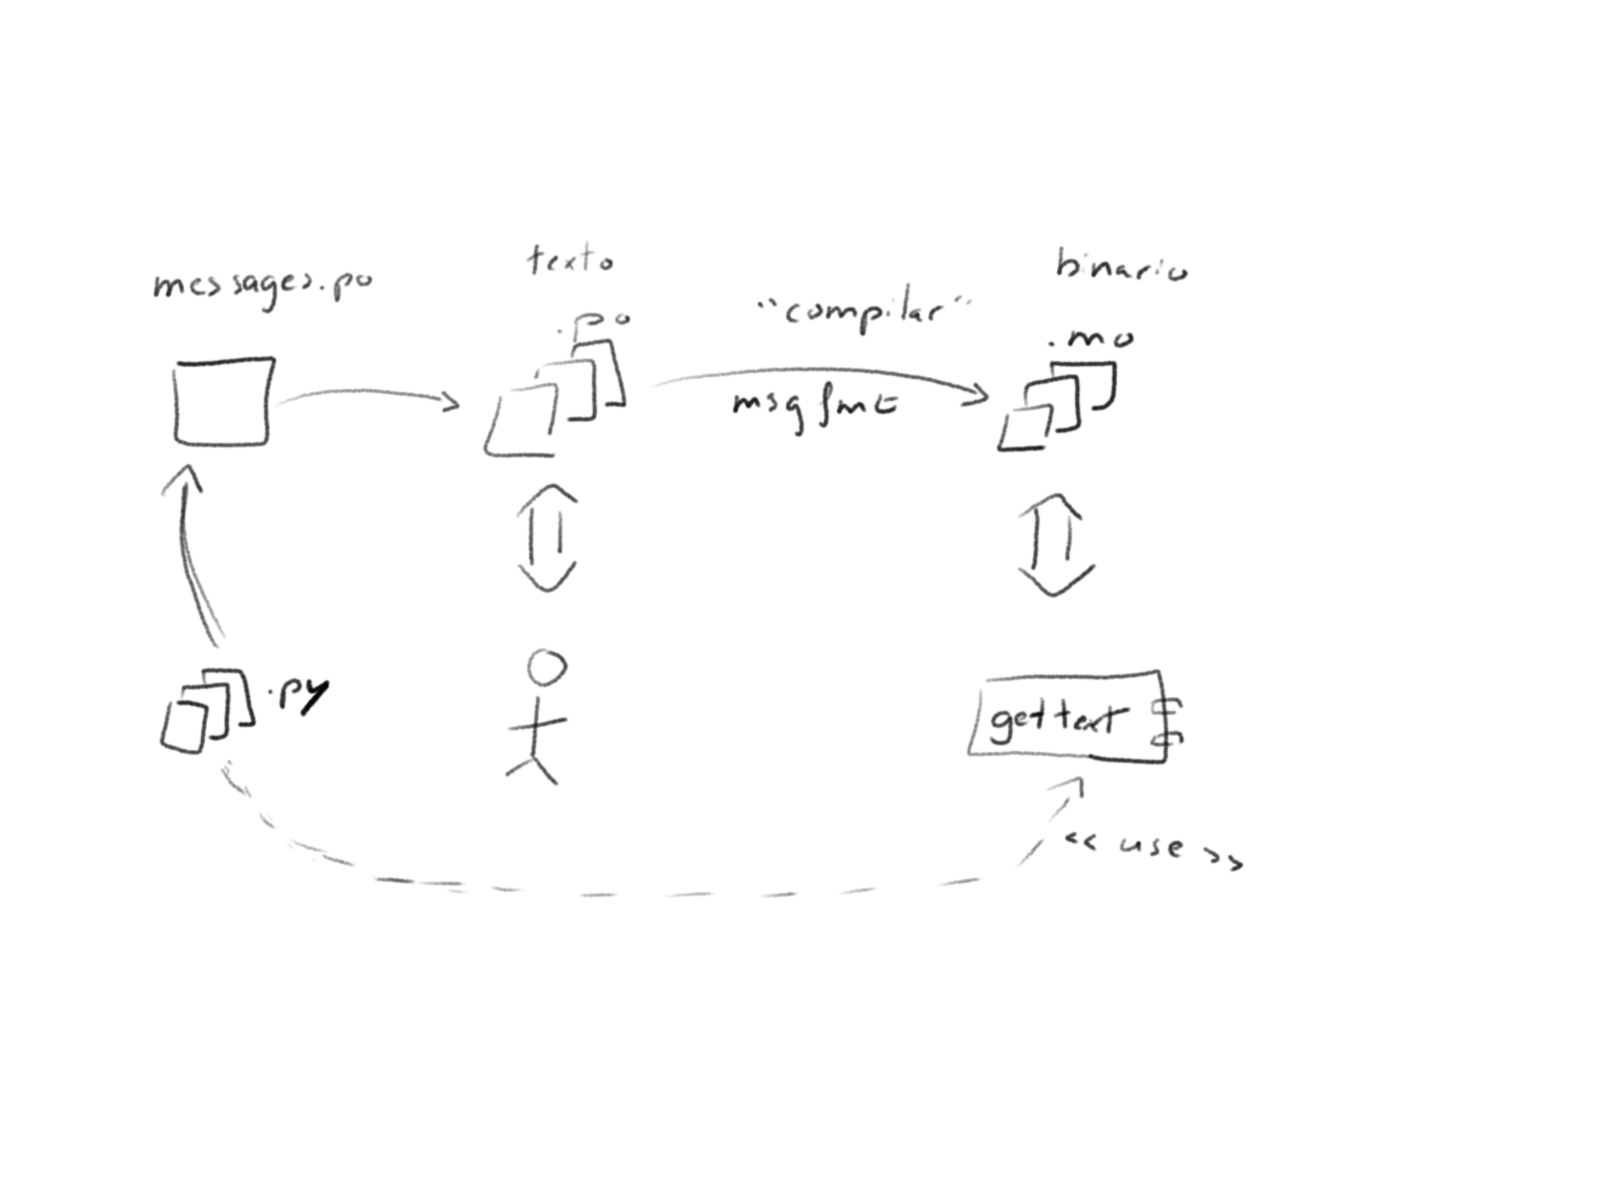 messages.po
texto
.po
"compilar"
msgfmt
binario
.mo
.py
gettext
<< use >>